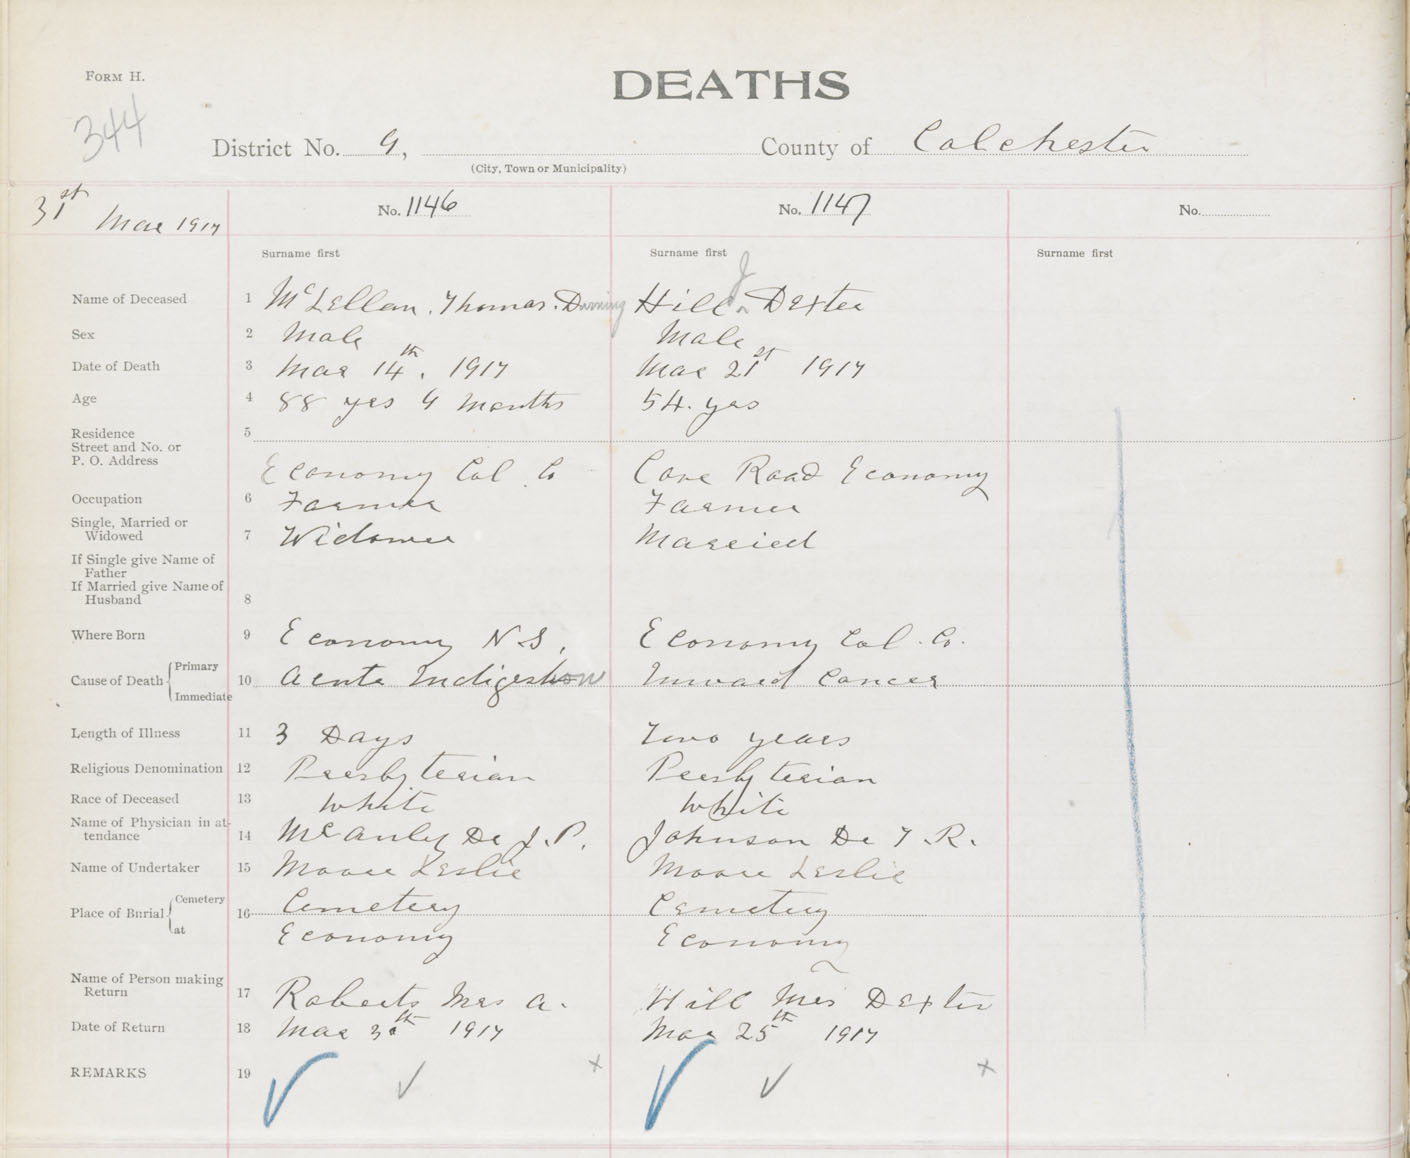 FORM H.
DEATHS
344
District No. 9, County of Colchester
(City, Town or Municipality)
31st Mar 1917
No. 1146 No. 1147 No.
Surname first Surname first Surname first
J
Name of Deceased 1 McLellan, Thomas. Hill Dexter
Sex 2 Male Male
Date of Death 3 Mar 14th, 1917 Mar 21st 1917
Age 4 88 yrs 9 months 54. yrs
Residence 5
Street and No. or
P. O. Address Economy Col Co Cove Road Economy
Occupation 6 Farmer Farmer
Single, Married or
Widowed 7 Widower Married
If Single give Name of
Father
If Married give Name of
Husband 8
Where Born 9 Economy N.S. Economy Col. Co.
Primary
Cause of Death 10 Acute Indigestion Inward Cancer
Immediate
Length of Illness 11 3 Days Two years
Religious Denomination 12 Presbyterian Presbyterian
Race of Deceased 13 White White
Name of Physician in at-
tendance 14 Dr J. P. Johnson Dr T. R.
Name of Undertaker 15 Moore Leslie Moore Leslie
Cemetery
Place of Burial 16 Cemetery Cemetery
at Economy Economy
Name of Person making
Return 17 Roberts Mrs A. Hill Mrs Dexter
Date of Return 18 Mar 30th 1917 Mar 25th 1917
REMARKS 19